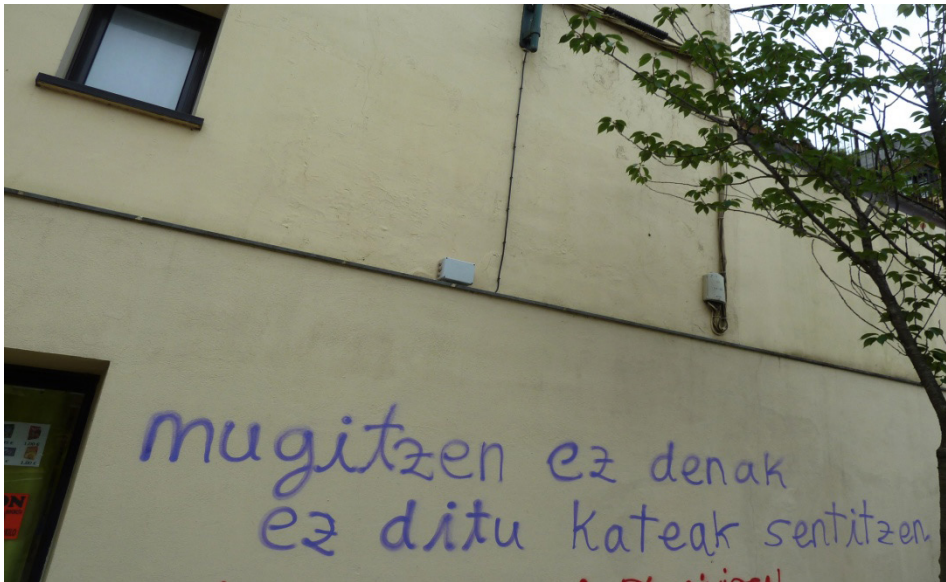 mugitzen ez denak
ez ditu kateak sentitzen.